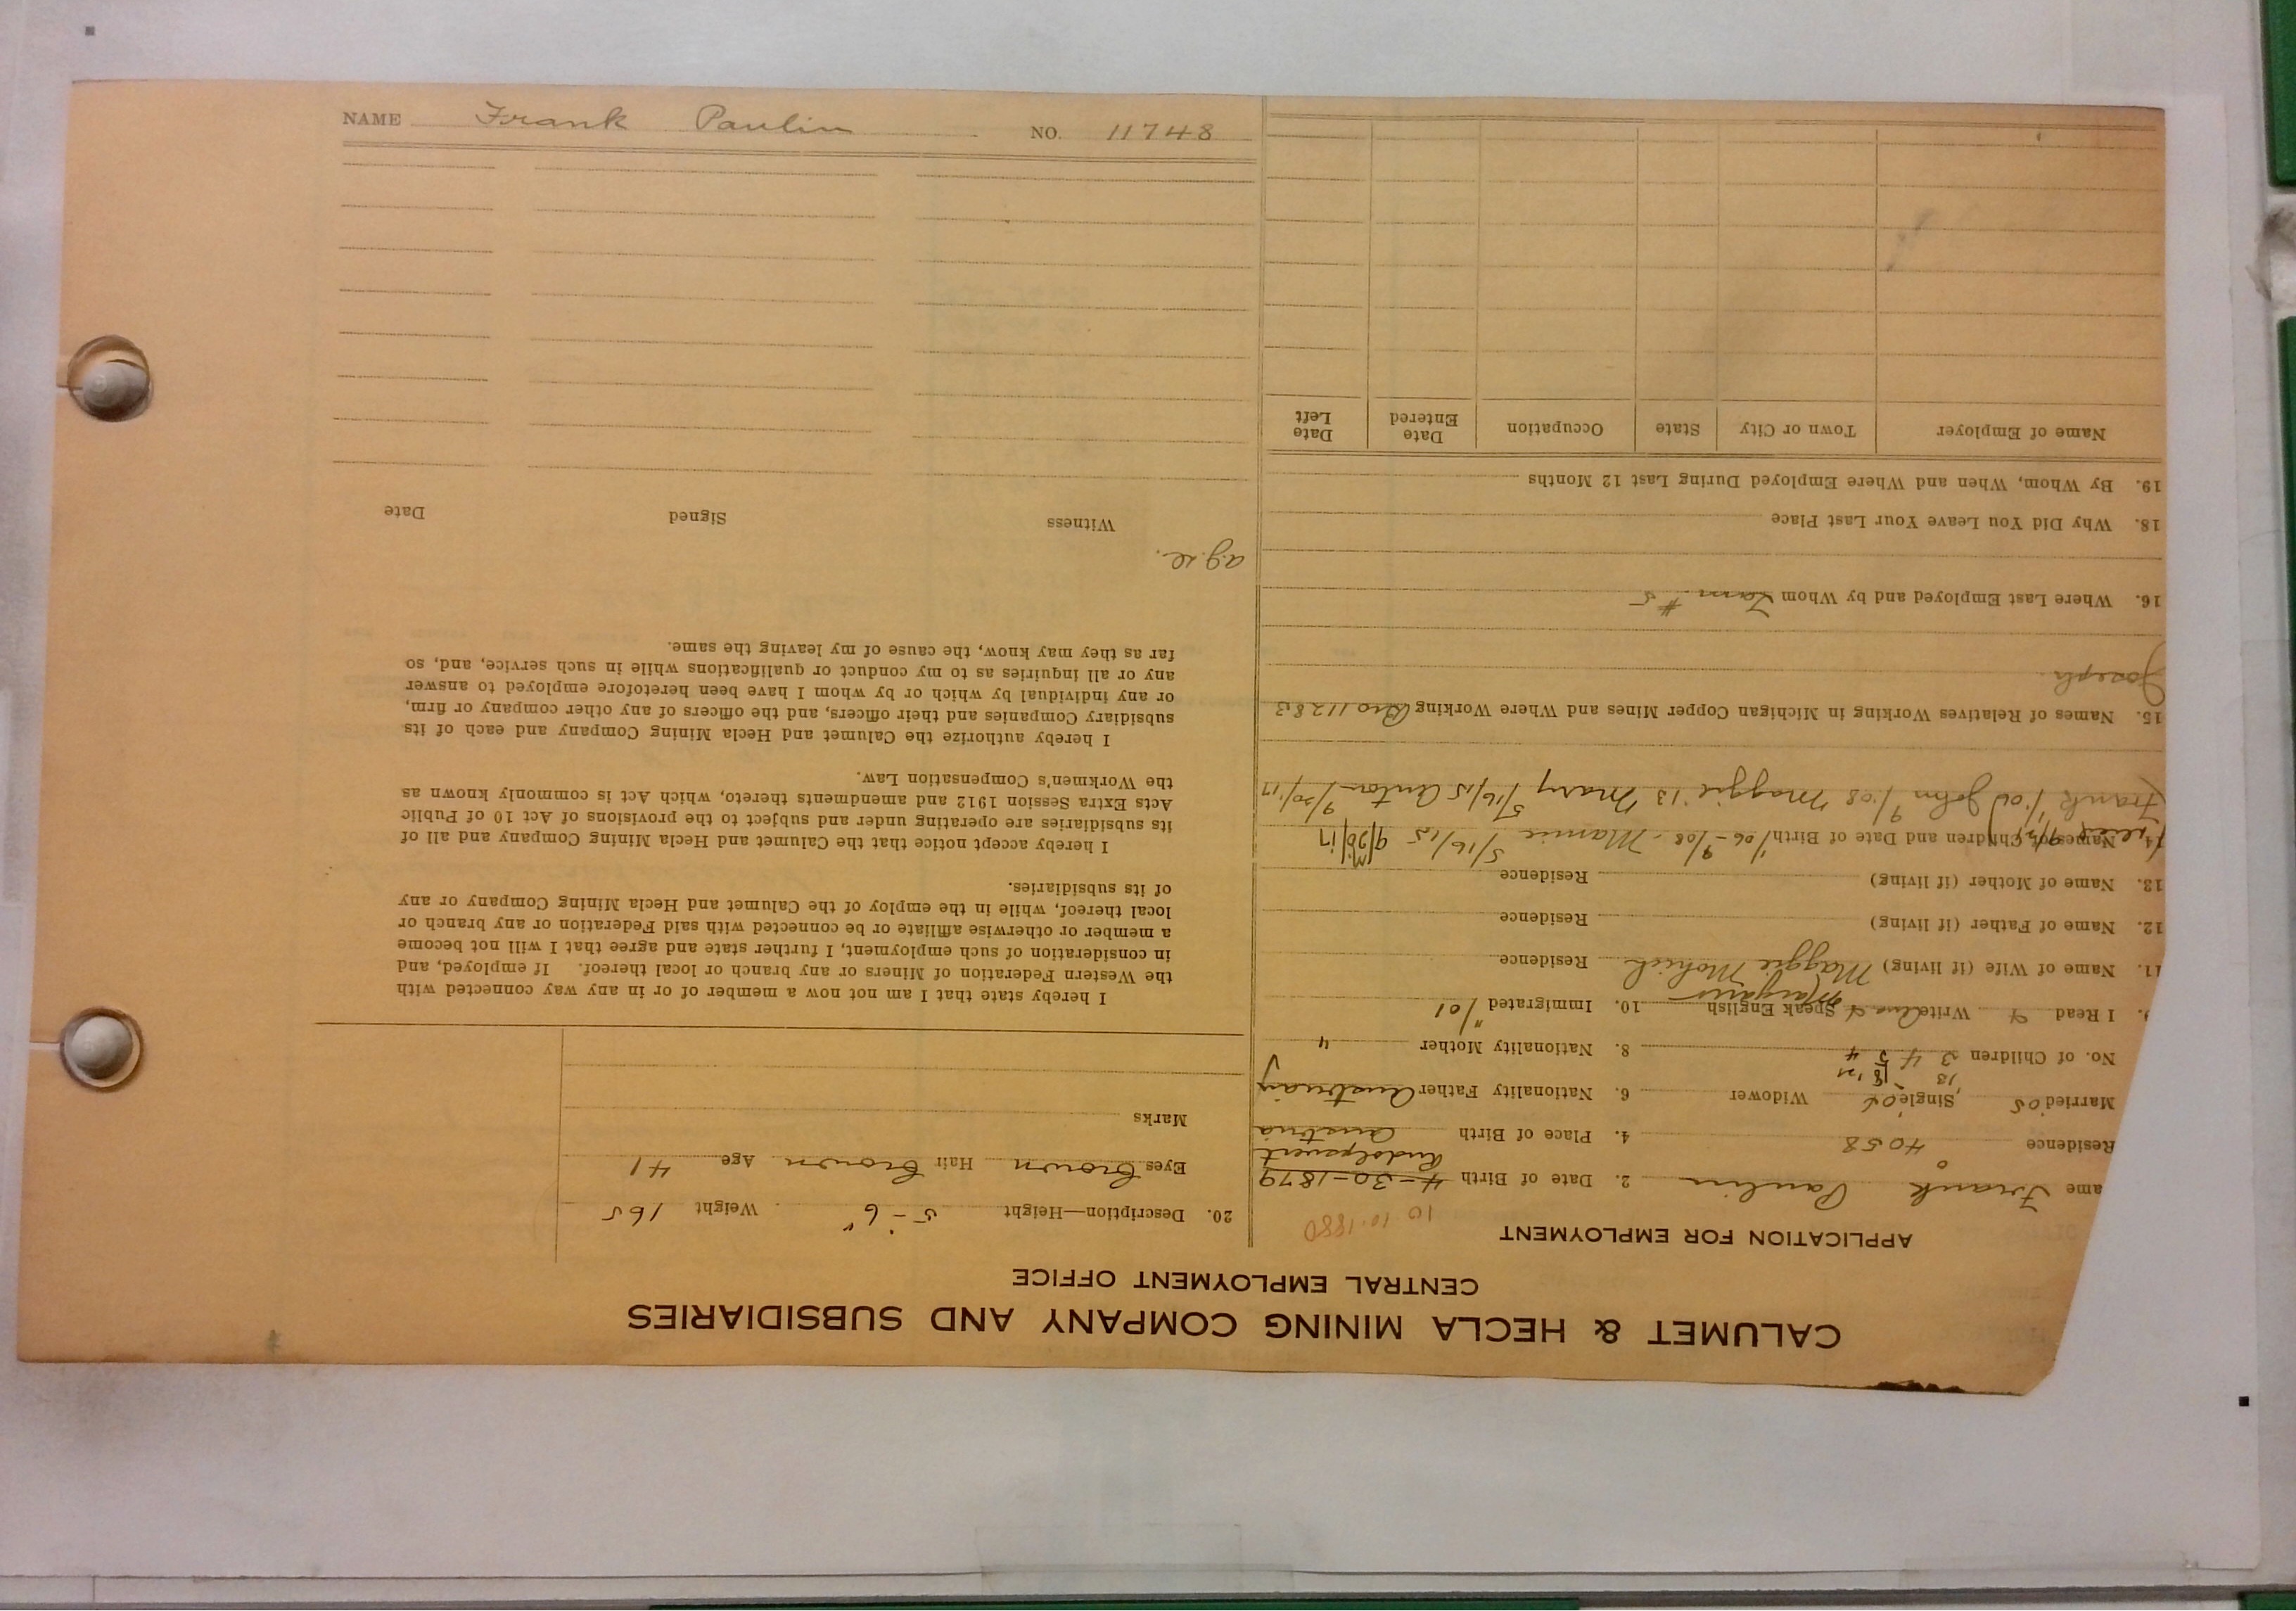 CALUMET & HECLA MINING COMPANY AND SUBSIDIARIES
CENTRAL EMPLOYMENT OFFICE
APPLICATION FOR EMPLOYMENT
10-10-1880
ame Frank Paulin 2. Date of Birth 4-30-1879
Residence 4058 4. Place of Birth Austria
Married '05 Single Widower 6. Nationality Father Austrian
No. of Children 3 4 5 4 8. Nationality Mother "
9. I Read & Write Speak English 10. Immigrated "/01
11. Name of Wife (if living) Maggie Residence
12. Name of Father (if living) Residence
13. Name of Mother (if living) Residence
14. Names of Children and Date of Birth 1/06 - 9/08 - Mamie 5/16/15
Frank 1/06 John 9/08 Maggie '13 Mary 5/16/15 Anton 9/20/17
15. Names of Relatives Working in Michigan Copper Mines and Where Working Bro 11283
Joseph
16. Where Last Employed and by Whom Tam #5
18. Why Did You Leave Your Last Place
19. By Whom, When and Where Employed During Last 12 Months
Name of Employer Town or City State Occupation Date Entered Date Left
20. Description—Height 5-6" Weight 165
Eyes Brown Hair Brown Age 41
Marks
I hereby state that I am not now a member of or in any way connected with
the Western Federation of Miners or any branch or local thereof. If employed, and
in consideration of such employment, I further state and agree that I will not become
a member or otherwise affiliate or be connected with said Federation or any branch or
local thereof, while in the employ of the Calumet and Hecla Mining Company or any
of its subsidiaries.
I hereby accept notice that the Calumet and Hecla Mining Company and all of
its subsidiaries are operating under and subject to the provisions of Act 10 of Public
Acts Extra Session 1912 and amendments thereto, which Act is commonly known as
the Workmen's Compensation Law.
I hereby authorize the Calumet and Hecla Mining Company and each of its
subsidiary Companies and their officers, and the officers of any other company or firm,
or any individual by which or by whom I have been heretofore employed to answer
any or all inquiries as to my conduct or qualifications while in such service, and, so
far as they may know, the cause of my leaving the same.
Witness Signed Date
NAME Frank Paulin NO. 11748